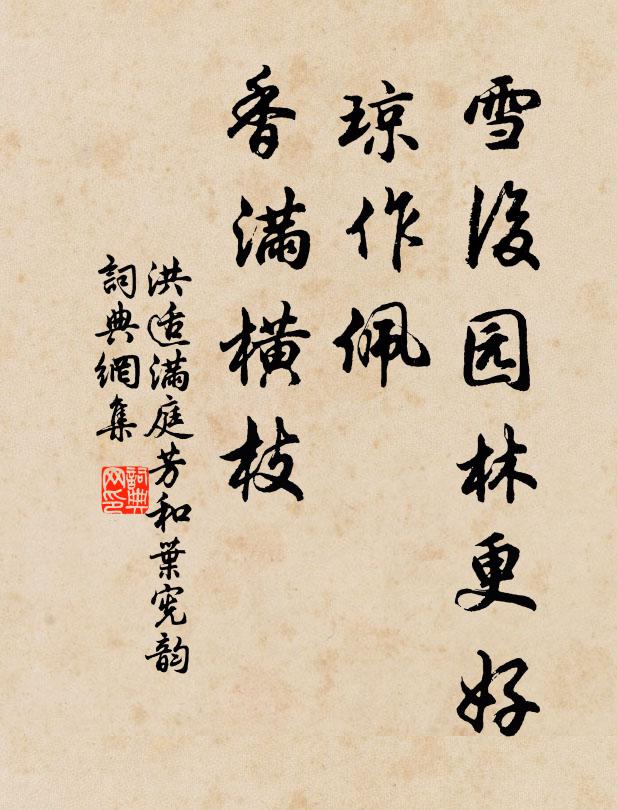 雪後园林更好
琼作佩
香满横枝
洪适满庭芳和葉宪韵
詞典網集
詞典网印